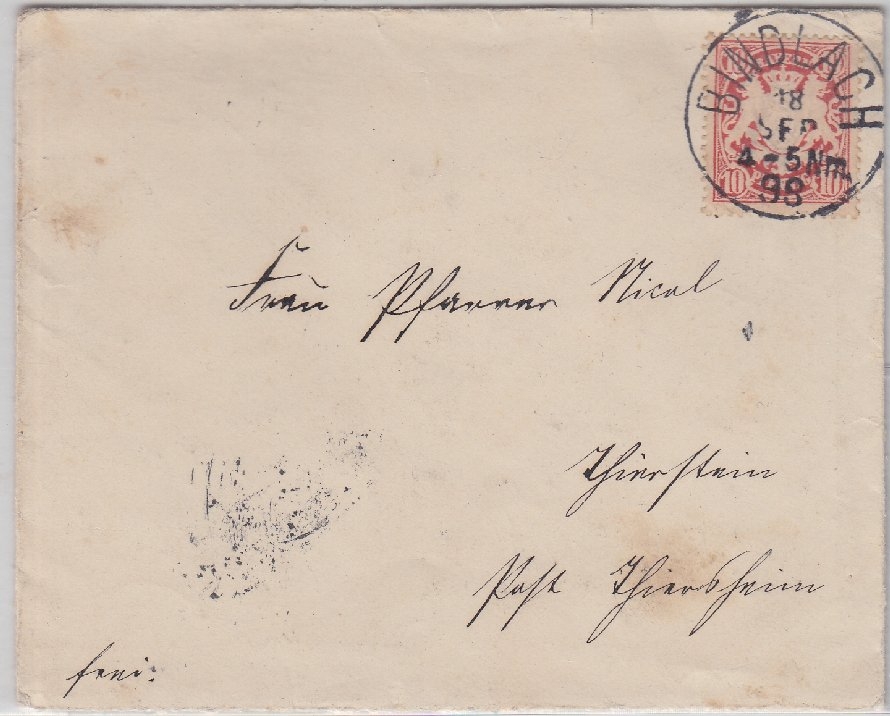 BINDLACH
18
SEP
4-5Nm.
98
10 10
Frau Pfarrer Nicol
Thierstein
Post Thiersheim
frei.